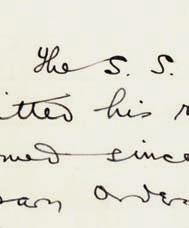 The S. S.
itted his
med since
orders